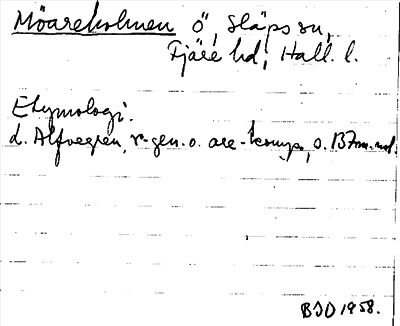 Möareholmen ö, Släps sn,
Fjäre hd, Hall. l.
Etymologi.
L. Alfvegren, r-gen. o. are-komp., s.
BJO 1958.